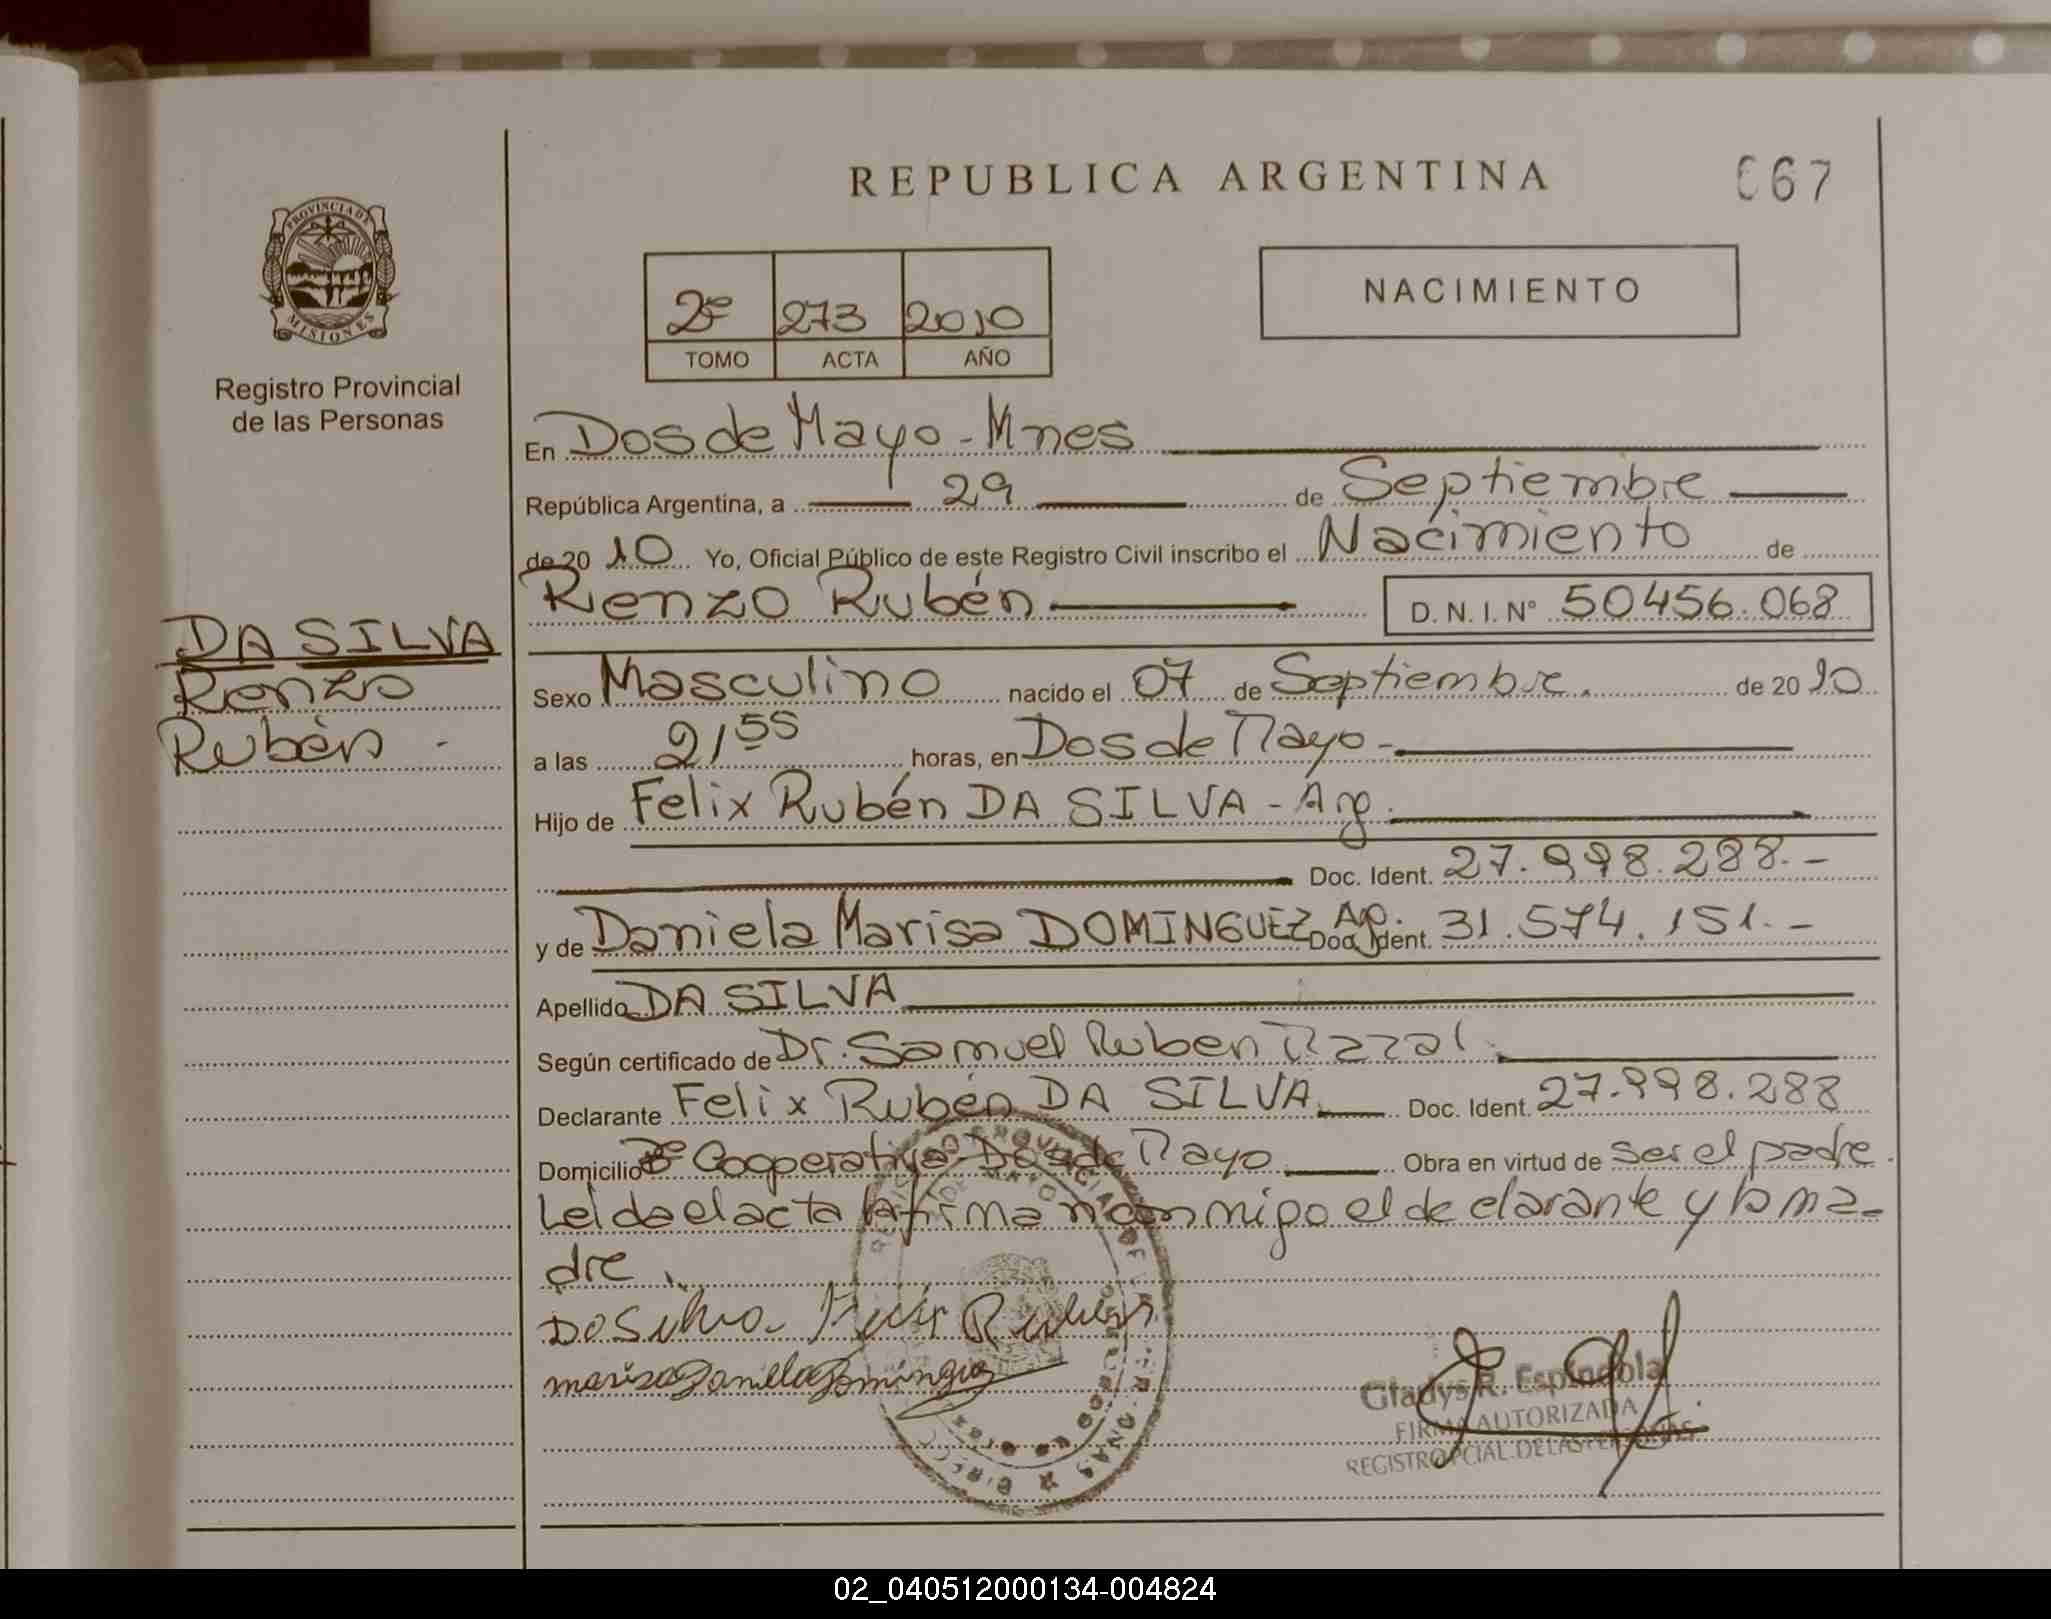 REPUBLICA ARGENTINA
067
PROVINCIA DE
MISIONES
Registro Provincial
de las Personas
2º 273 2010
TOMO ACTA AÑO
NACIMIENTO
En Dos de Mayo - Mnes
República Argentina, a 29 de Septiembre
de 2010 Yo, Oficial Público de este Registro Civil inscribo el Nacimiento de
Renzo Rubén D.N.I. Nº 50456.068
DA SILVA
Renzo
Rubén -
Sexo Masculino nacido el 07 de Septiembre. de 2010
a las 21 55 horas, en Dos de Mayo -
Hijo de Felix Rubén DA SILVA - Arg.
Doc. Ident. 27.998.288.-
y de Daniela Marisa DOMINGUEZ Ag. Doc. Ident. 31.574.151.-
Apellido DA SILVA
Según certificado de Dr. Samuel Ruben
Declarante Felix Rubén DA SILVA Doc. Ident. 27.998.288
Domicilio Bº Cooperativa - Dos de Mayo Obra en virtud de ser el padre.
Leída el acta la firman conmigo el declarante y la ma-
dre.
Da Silva Felix Ruben
marisa Daniela Dominguez
Gladys R. Espindola
FIRMA AUTORIZADA
REGISTRO PCIAL. DE LAS PERSONAS
02_040512000134-004824